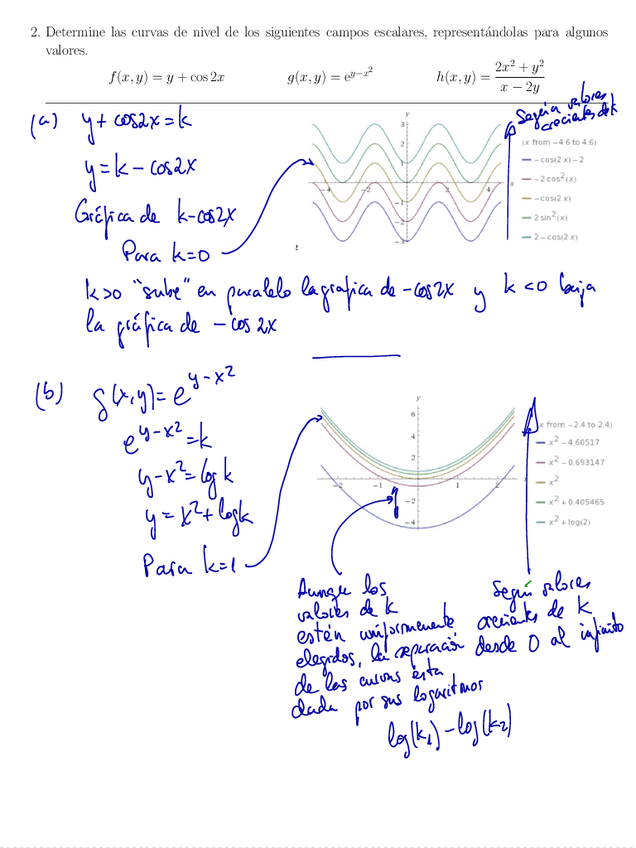 2. Determine las curvas de nivel de los siguientes campos escalares, representándolas para algunos
valores.
f(x, y) = y + cos 2x    g(x, y) = e^{y−x²}    h(x, y) = (2x² + y²)/(x − 2y)
(a) y + cos2x = k
Según valores
crecientes de k
y = k − cos2x
Gráfica de k-cos2x
Para k=0
(x from −4.6 to 4.6)
−cos(2 x) − 2
−2 cos²(x)
−cos(2 x)
2 sin²(x)
2 − cos(2 x)
k>0 "sube" en paralelo la grafica de -cos2x y k<0 baja
la gráfica de - cos 2x
(b) g(x,y) = e^{y-x²}
e^{y-x²} = k
y-x² = log k
y = x² + log k
Para k=1
(x from −2.4 to 2.4)
x² − 4.60517
x² − 0.693147
x²
x² + 0.405465
x² + log(2)
Aunque los
valores de k
estén uniformemente
elegidos, la separación
de las curvas esta
dada por sus logaritmos
log(k₁) - log(k₂)
Según valores
crecientes de k
desde 0 al infinito